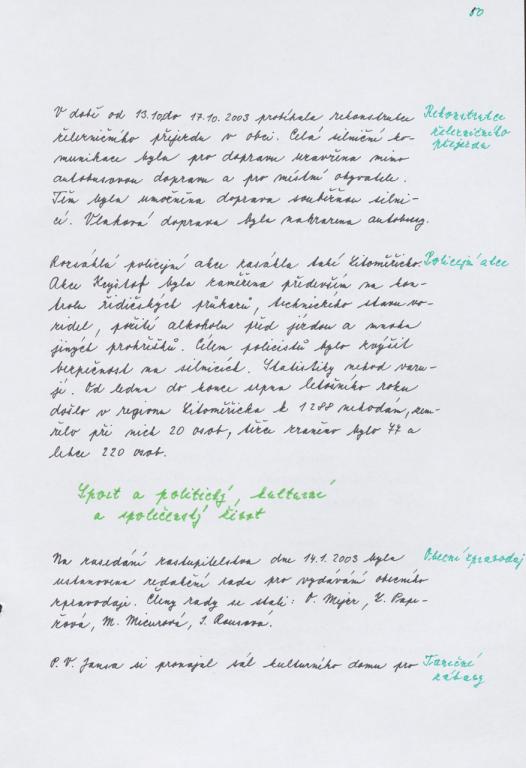 80
V době od 13.10. do 17.10. 2003 probíhala rekonstrukce
Rekonstrukce
železničního přejezdu v obci. Celá silniční ko-
železničního
přejezdu
munikace byla pro dopravu uzavřena mimo
autobusovou dopravu a pro místní obyvatele.
Tím byla umožněna doprava souběžnou silni-
cí. Vlaková doprava byla nahrazena autobusy.
Rozsáhlá policejní akce zasáhla také Litoměřicko.
Policejní akce
Akce Kryštof byla zaměřena především na kon-
trolu řidičských průkazů, technického stavu vo-
zidel, požití alkoholu před jízdou a mnoha
jiných prohřešků. Cílem policistů bylo zvýšit
bezpečnost na silnicích. Statistiky nehod varu-
jí. Od ledna do konce srpna letošního roku
došlo v regionu Litoměřicka k 1288 nehodám, zem-
řelo při nich 20 osob, těžce zraněno bylo 77 a
lehce 220 osob.
Sport a politický, kulturní
a společenský život
Na zasedání zastupitelstva dne 14.1. 2003 byla
Obecní zpravodaj
ustanovena redakční rada pro vydávání obecního
zpravodaje. Členy rady se stali: O. Mejer,
M. Micurová,
P. V. Jansa si pronajal sál kulturního domu pro
Taneční
zábavy